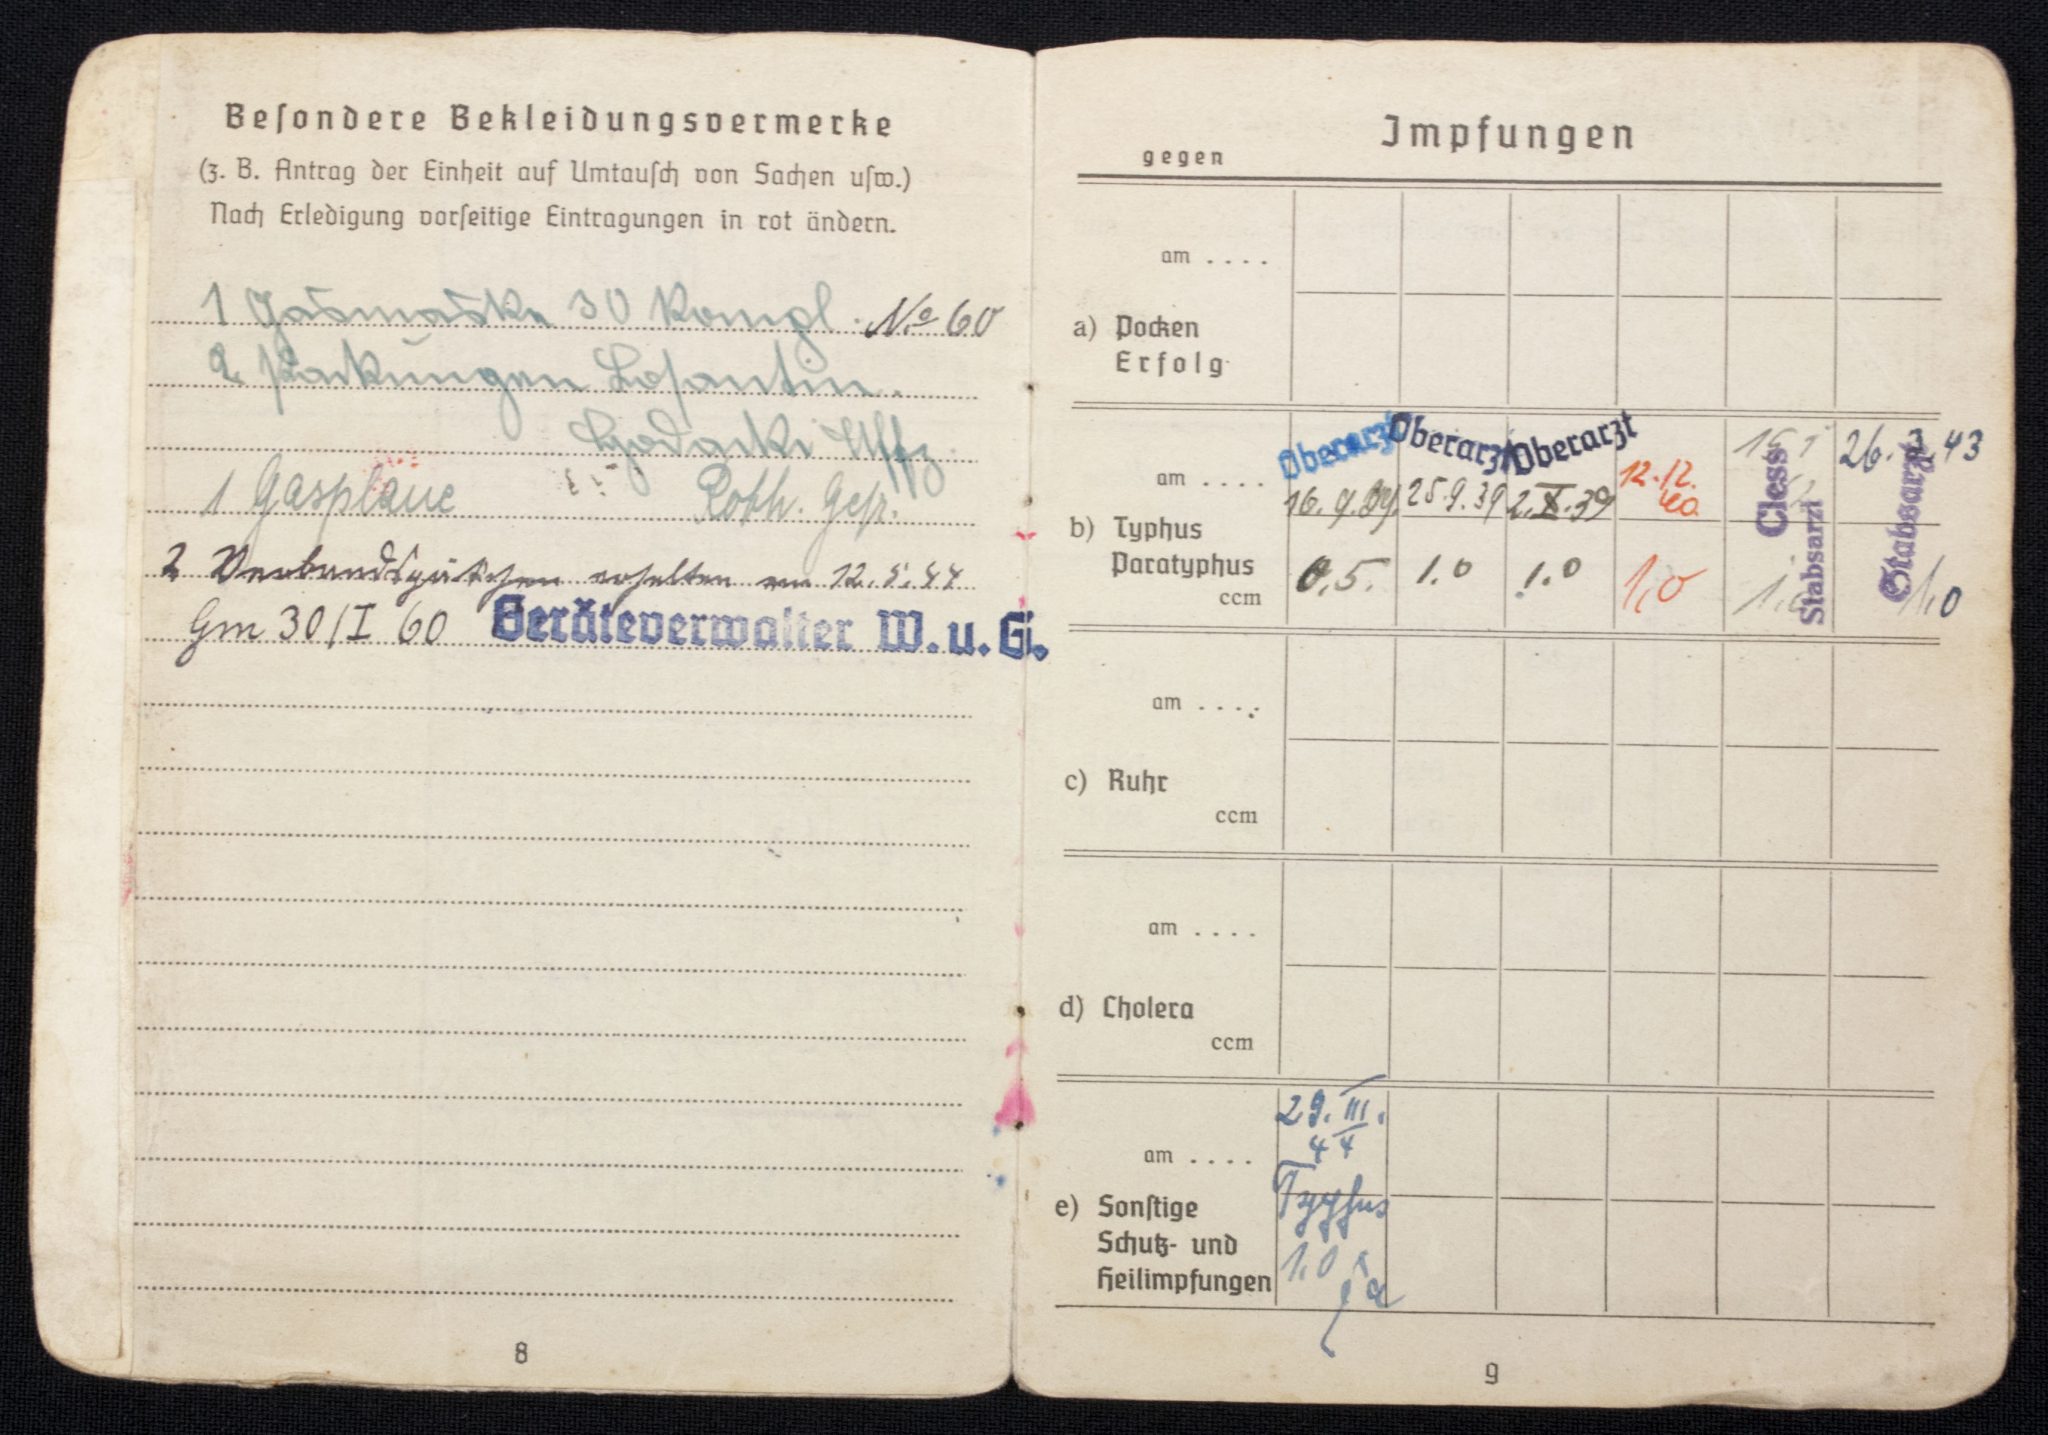 Besondere Bekleidungsvermerke
(z. B. Antrag der Einheit auf Umtausch von Sachen usw.)
Nach Erledigung vorseitige Eintragungen in rot ändern.
1 Gasmaske 30 kompl. No 60
2 Packungen Losantin.
Uffz.
1 Gasplane Roth. Gefr.
2 Verbandspäckchen erhalten am 12.5.44
Gm 30/I 60 Geräteverwalter W. u. G.
8
Impfungen
gegen
am . . . .
a) Pocken
Erfolg
Oberarzt Oberarzt Oberarzt
am . . . . 16.9.39. 25.9.39 2.X.39 12.12. 40. 26.3.43
b) Typhus
Paratyphus
ccm
0,5. 1.0 1.0 1,0 1,0 1,0
Cless
Stabsarzt
Stabsarzt
am . . . .
c) Ruhr
ccm
am . . . .
d) Cholera
ccm
29. III. 44
am . . . .
Typhus
e) Sonstige
Schutz- und
Heilimpfungen
1,0
9